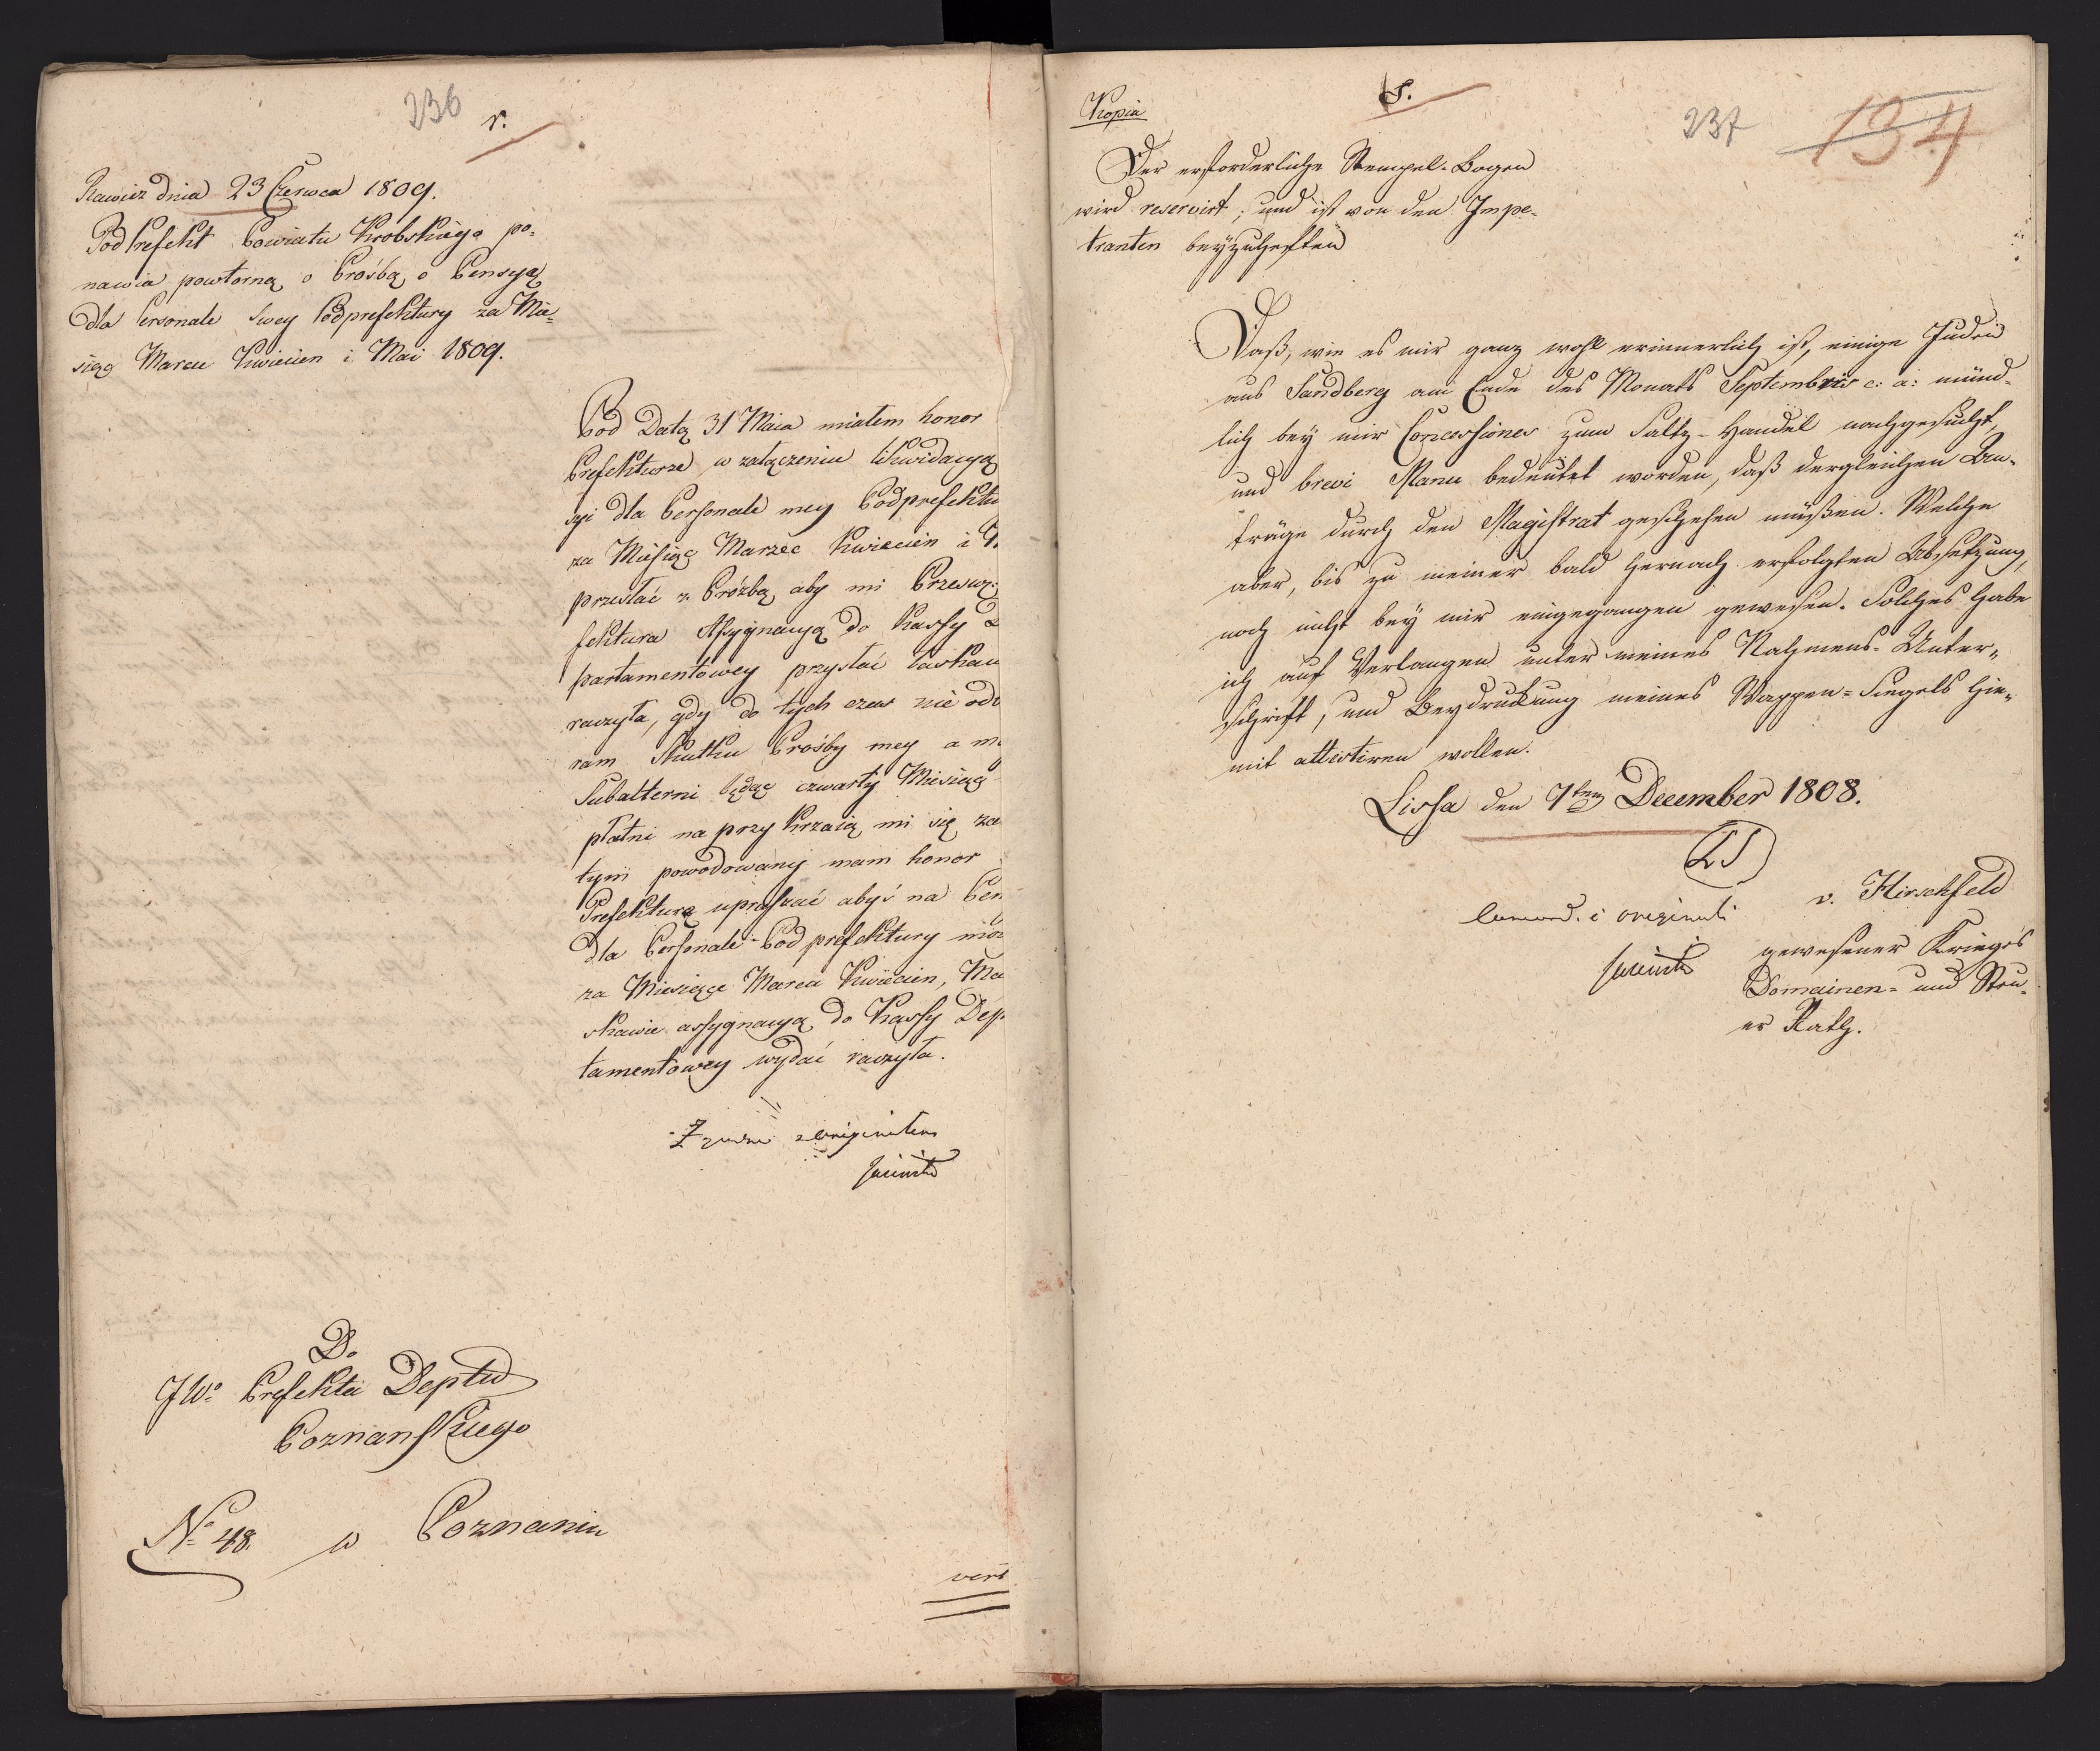 236
r.
Rawicz dnia 23 Czerwca 1809.
Podprefekt Powiatu Krobskiego po-
nawia powtorną o Prośbą o Pensyą
dla Personale Swey Podprefektury za Mie-
siąc Marcu Kwiecien i Mai 1809.
Pod Datą 31 Maia miałem honor
Prefekturze w załączeniu likwidacyą
syi dla Personale mey Podprefektu
za Miesiąc Marzec Kwiecien i
przesłać z Prożbą aby mi Przesw:
fektura Assygnacyą do Kassy
partamentowey przysłać łaskaw
raczyła, gdy do tych czas nie odb
ram Skutku Prośby mey a m
Subalterni będąc czwarty Miesiąc
płatni na przy krzaią mi się za
tym powodowany mam honor
Prefekturą upraszać abyś na Pen
dla Personale Podprefektury
za Miesięce Marca Kwiecien, Ma
skawie assygnacyą do Kassy Dep
tamentowey wydać raczyła.
Do
JWo Prefekta Deptu
Poznanskiego
No 48. w Poznaniu
vert
Kopia
S.
237
134
Der erforderliche Stempel-Bogen
wird reservirt, und ist von den Impe-
tranten beyzuheften
Daß, wie es mir ganz wohl erinnerlich ist, einige Juden
aus Sandberg am Ende des Monats Septembris c: a: münd-
lich bey mir Concessiones zum Saltz-Handel nachgesucht,
und brevi Manu bedeutet worden, daß dergleichen An-
träge durch den Magistrat geschehen müßen. Welche
aber, bis zu meiner bald hernach erfolgten Absetzung,
noch nicht bey mir eingegangen gewesen. Solches habe
ich auf Verlangen unter meines Nahmens-Unter-
schrift, und Beydruckung meines Wappen-Siegels hie-
mit attestiren wollen.
Lissa den 7ten December 1808.
LS
v. Hirschfeld
gewesener Krieges
Domainen- und Steu-
er Rath.